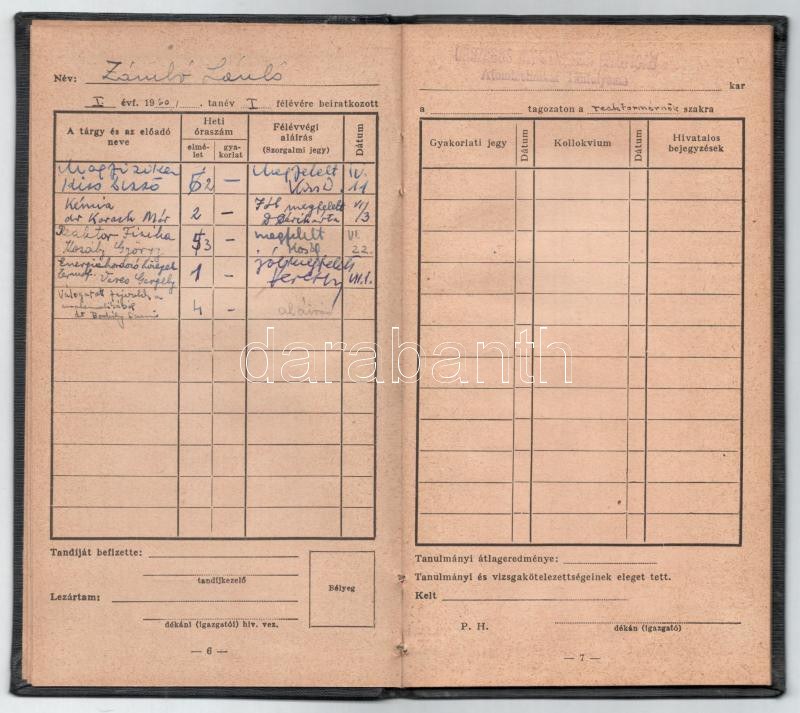 Név: Zámbó László
I. évf. 1960/ tanév I félévére beiratkozott
A tárgy és az előadó neve
Heti óraszám
elmélet
gyakorlat
Félévvégi aláírás (Szorgalmi jegy)
Dátum
Magfizika
Kiss Dezső
2 —
Megfelelt
Kiss D
IV. 11
Kémia
dr Korach Mór
2 —
Jól megfelelt
VI/3
Reaktor Fizika
Kosály György
3 —
megfelelt
VI. 22.
Energiahordozó közegek
termot. Veres Gergely
1 —
VII.1.
Válogatott fejezetek a
4 —
aláírva
darabanth
Tandíját befizette:
tandíjkezelő
Lezártam:
dékáni (igazgatói) hiv. vez.
Bélyeg
— 6 —
kar
a tagozaton a reaktormérnök szakra
Gyakorlati jegy
Dátum
Kollokvium
Dátum
Hivatalos bejegyzések
Tanulmányi átlageredménye:
Tanulmányi és vizsgakötelezettségeinek eleget tett.
Kelt
P. H.
dékán (igazgató)
— 7 —